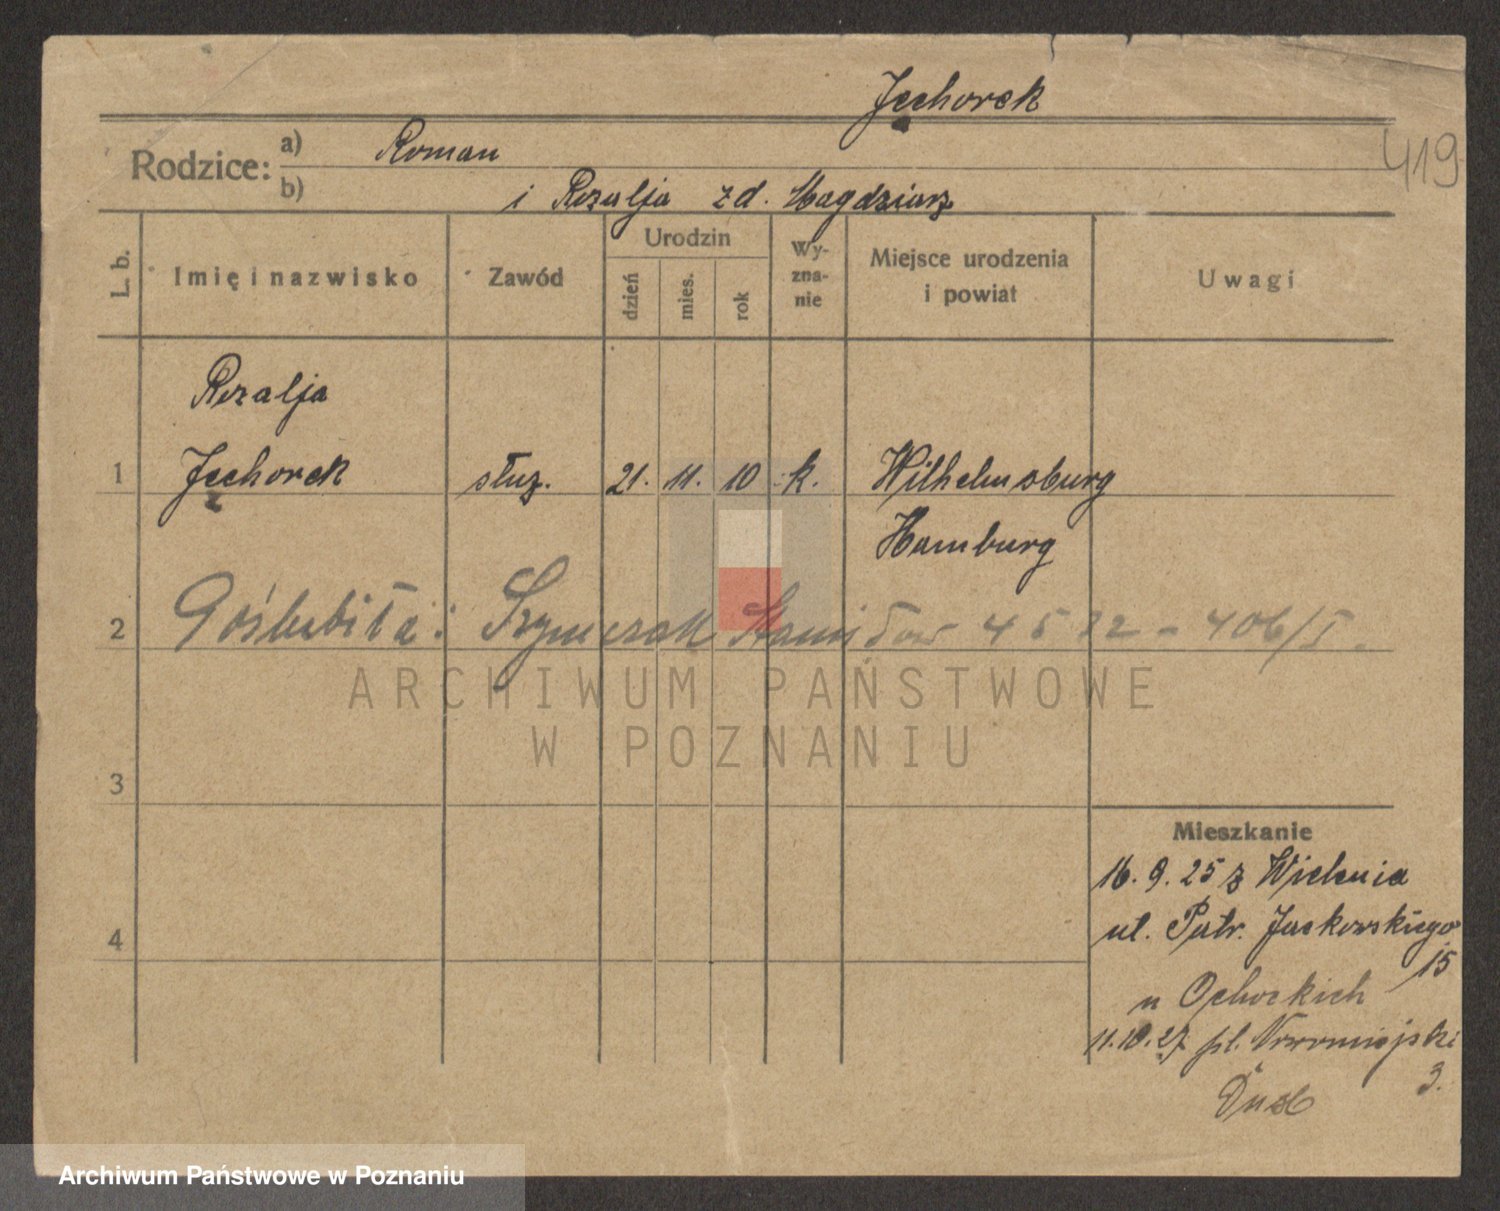 Jęchorek
419
Rodzice:
a) Roman
b) i Rozalja zd. Magdziarz
L. b.
Imię i nazwisko
Zawód
Urodzin
dzień
mies.
rok
Wy-
zna-
nie
Miejsce urodzenia
i powiat
Uwagi
Rozalja
1 Jęchorek służ. 21. 11. 10 k. Wilhelmsburg
Hamburg
2 Szymczak Stanisław 4 5 - 406/I.
ARCHIWUM PAŃSTWOWE
W POZNANIU
3
Mieszkanie
16. 9. 25 z Wielenia
4
ul. Patr. Jackowskiego
15
u Ochockich
11.10.27 pl. Nowomiejski
3.
Archiwum Państwowe w Poznaniu